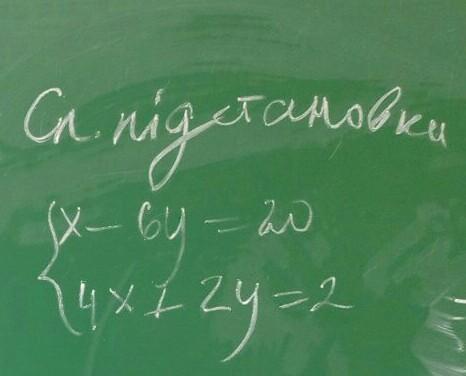 Сп. підстановки
x - 6y = 20
4x + 2y = 2